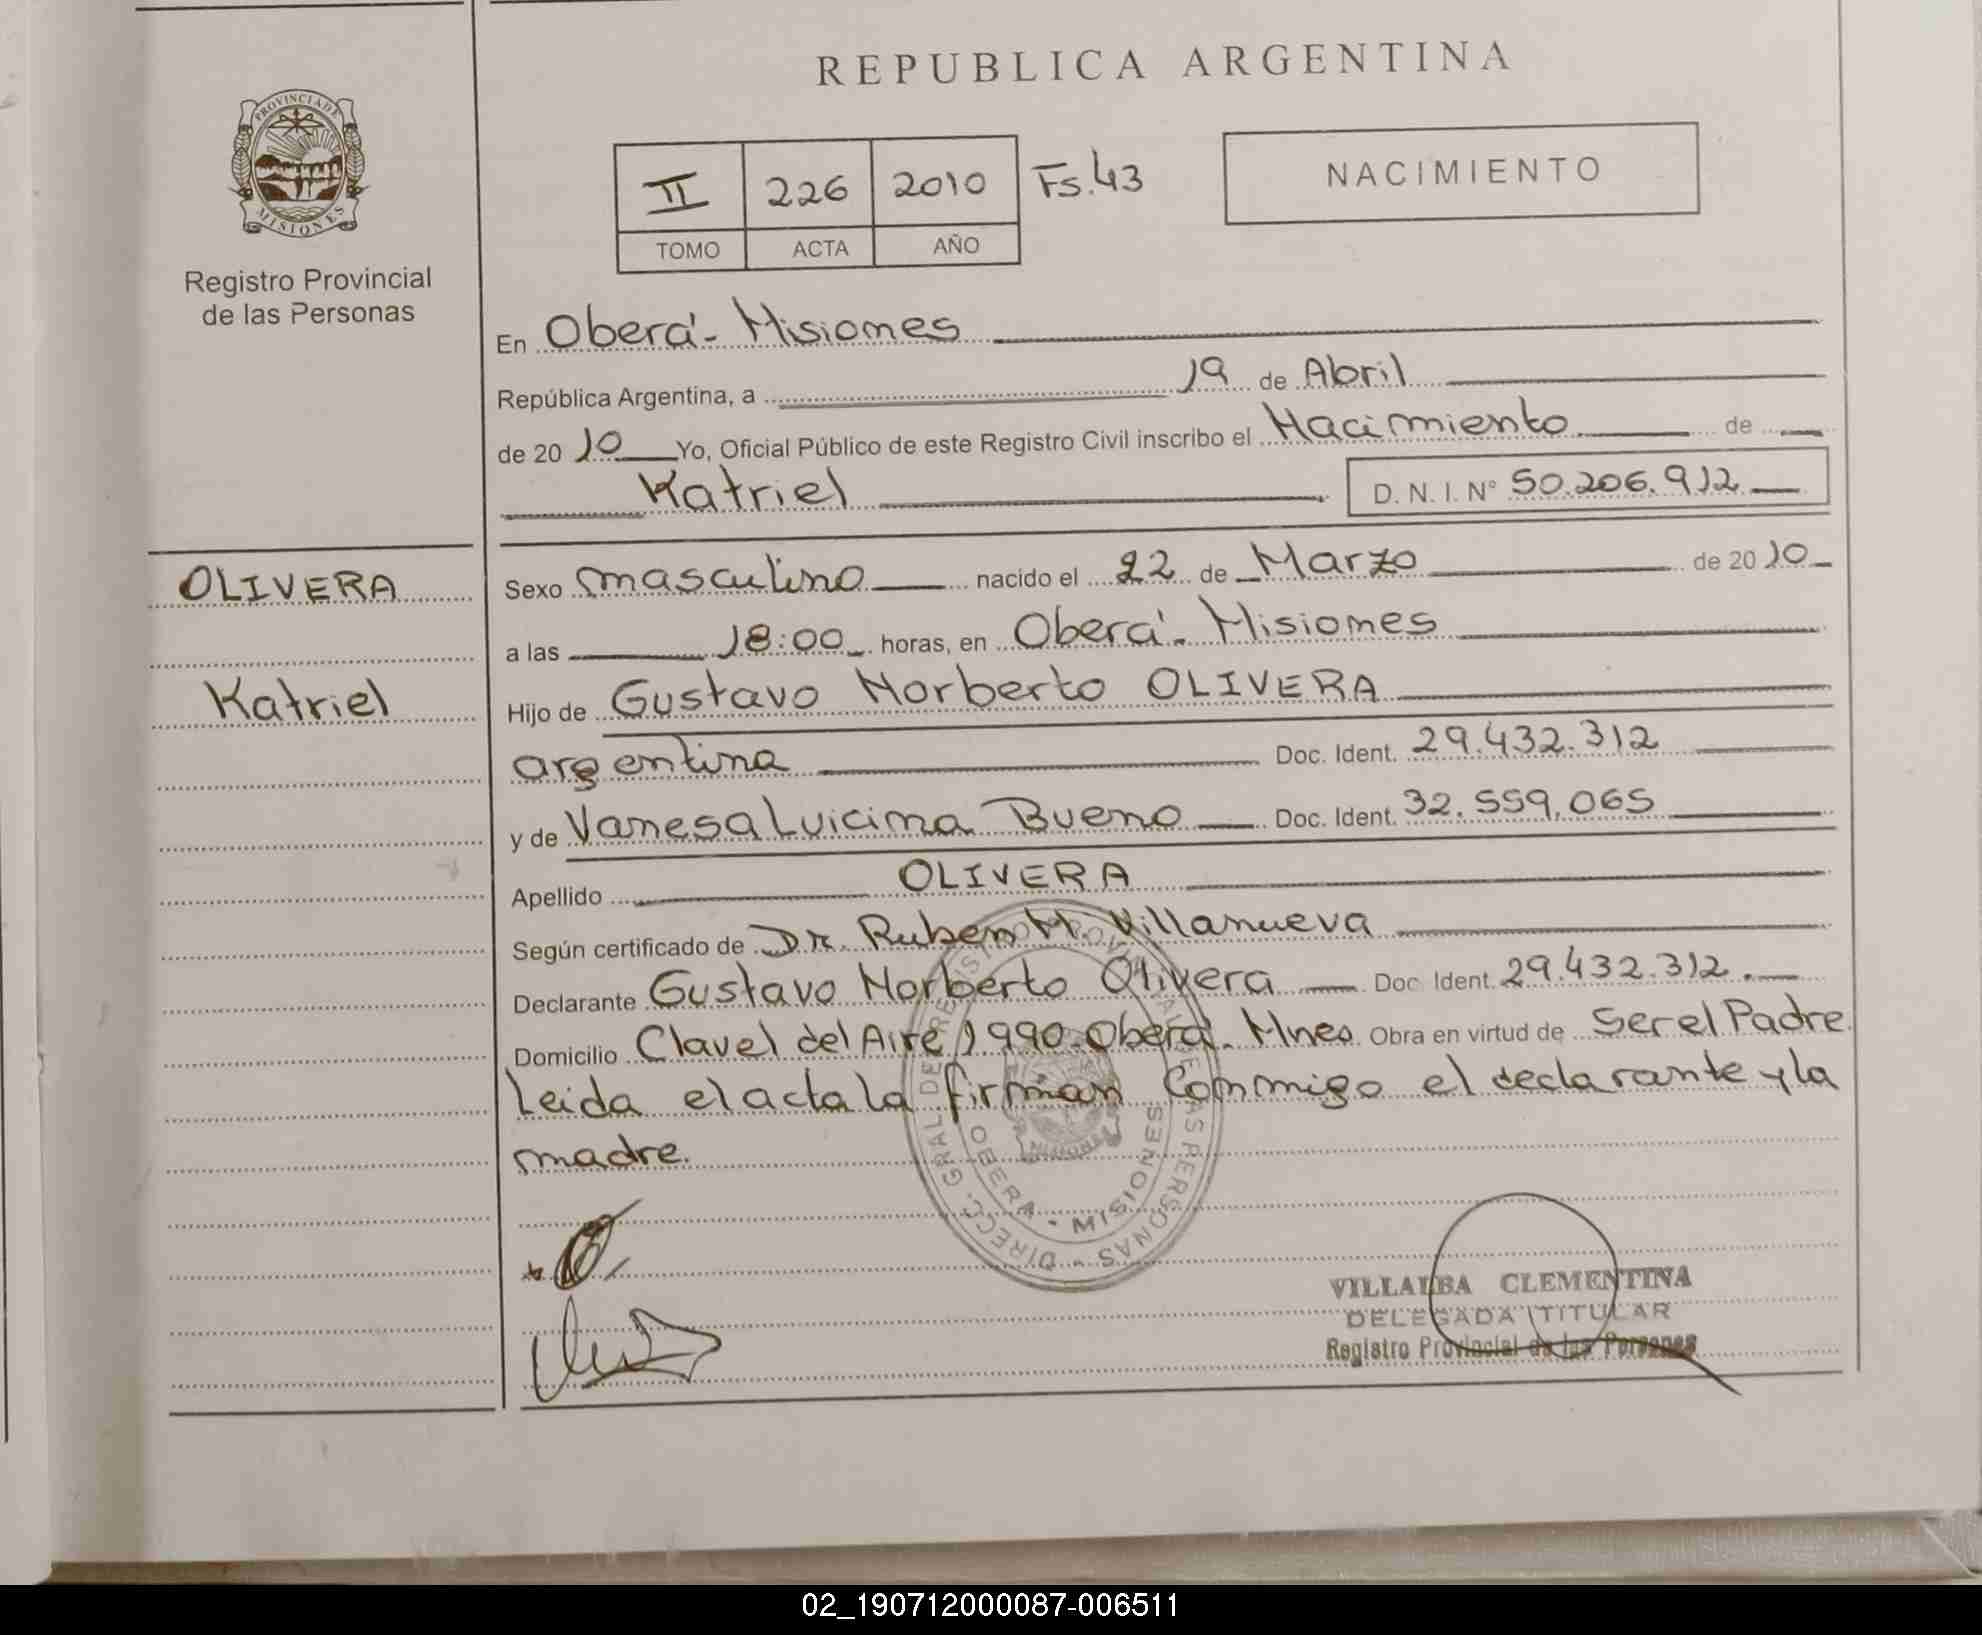 REPUBLICA ARGENTINA
PROVINCIA DE MISIONES
Registro Provincial
de las Personas
II 226 2010 Fs. 43
TOMO ACTA AÑO
NACIMIENTO
En Oberá - Misiones
República Argentina, a 19 de Abril
de 20 10 Yo, Oficial Público de este Registro Civil inscribo el Nacimiento de
Katriel D. N. I. N° 50.206.912
OLIVERA
Katriel
Sexo masculino nacido el 22 de Marzo de 20 10
a las 18:00 horas, en Oberá - Misiones
Hijo de Gustavo Norberto OLIVERA
argentina Doc. Ident. 29.432.312
y de Vanesa Luicina Bueno Doc. Ident. 32.559.065
Apellido OLIVERA
Según certificado de Dr. Ruben H. Villanueva
Declarante Gustavo Norberto Olivera Doc. Ident. 29.432.312.
Domicilio Clavel del Aire 1990 - Oberá - Mnes. Obra en virtud de Ser el Padre
Leida el acta la firman Conmigo el declarante y la
madre.
OBERA - MISIONES
VILLALBA CLEMENTINA
DELEGADA TITULAR
Registro Provincial de las Personas
02_190712000087-006511